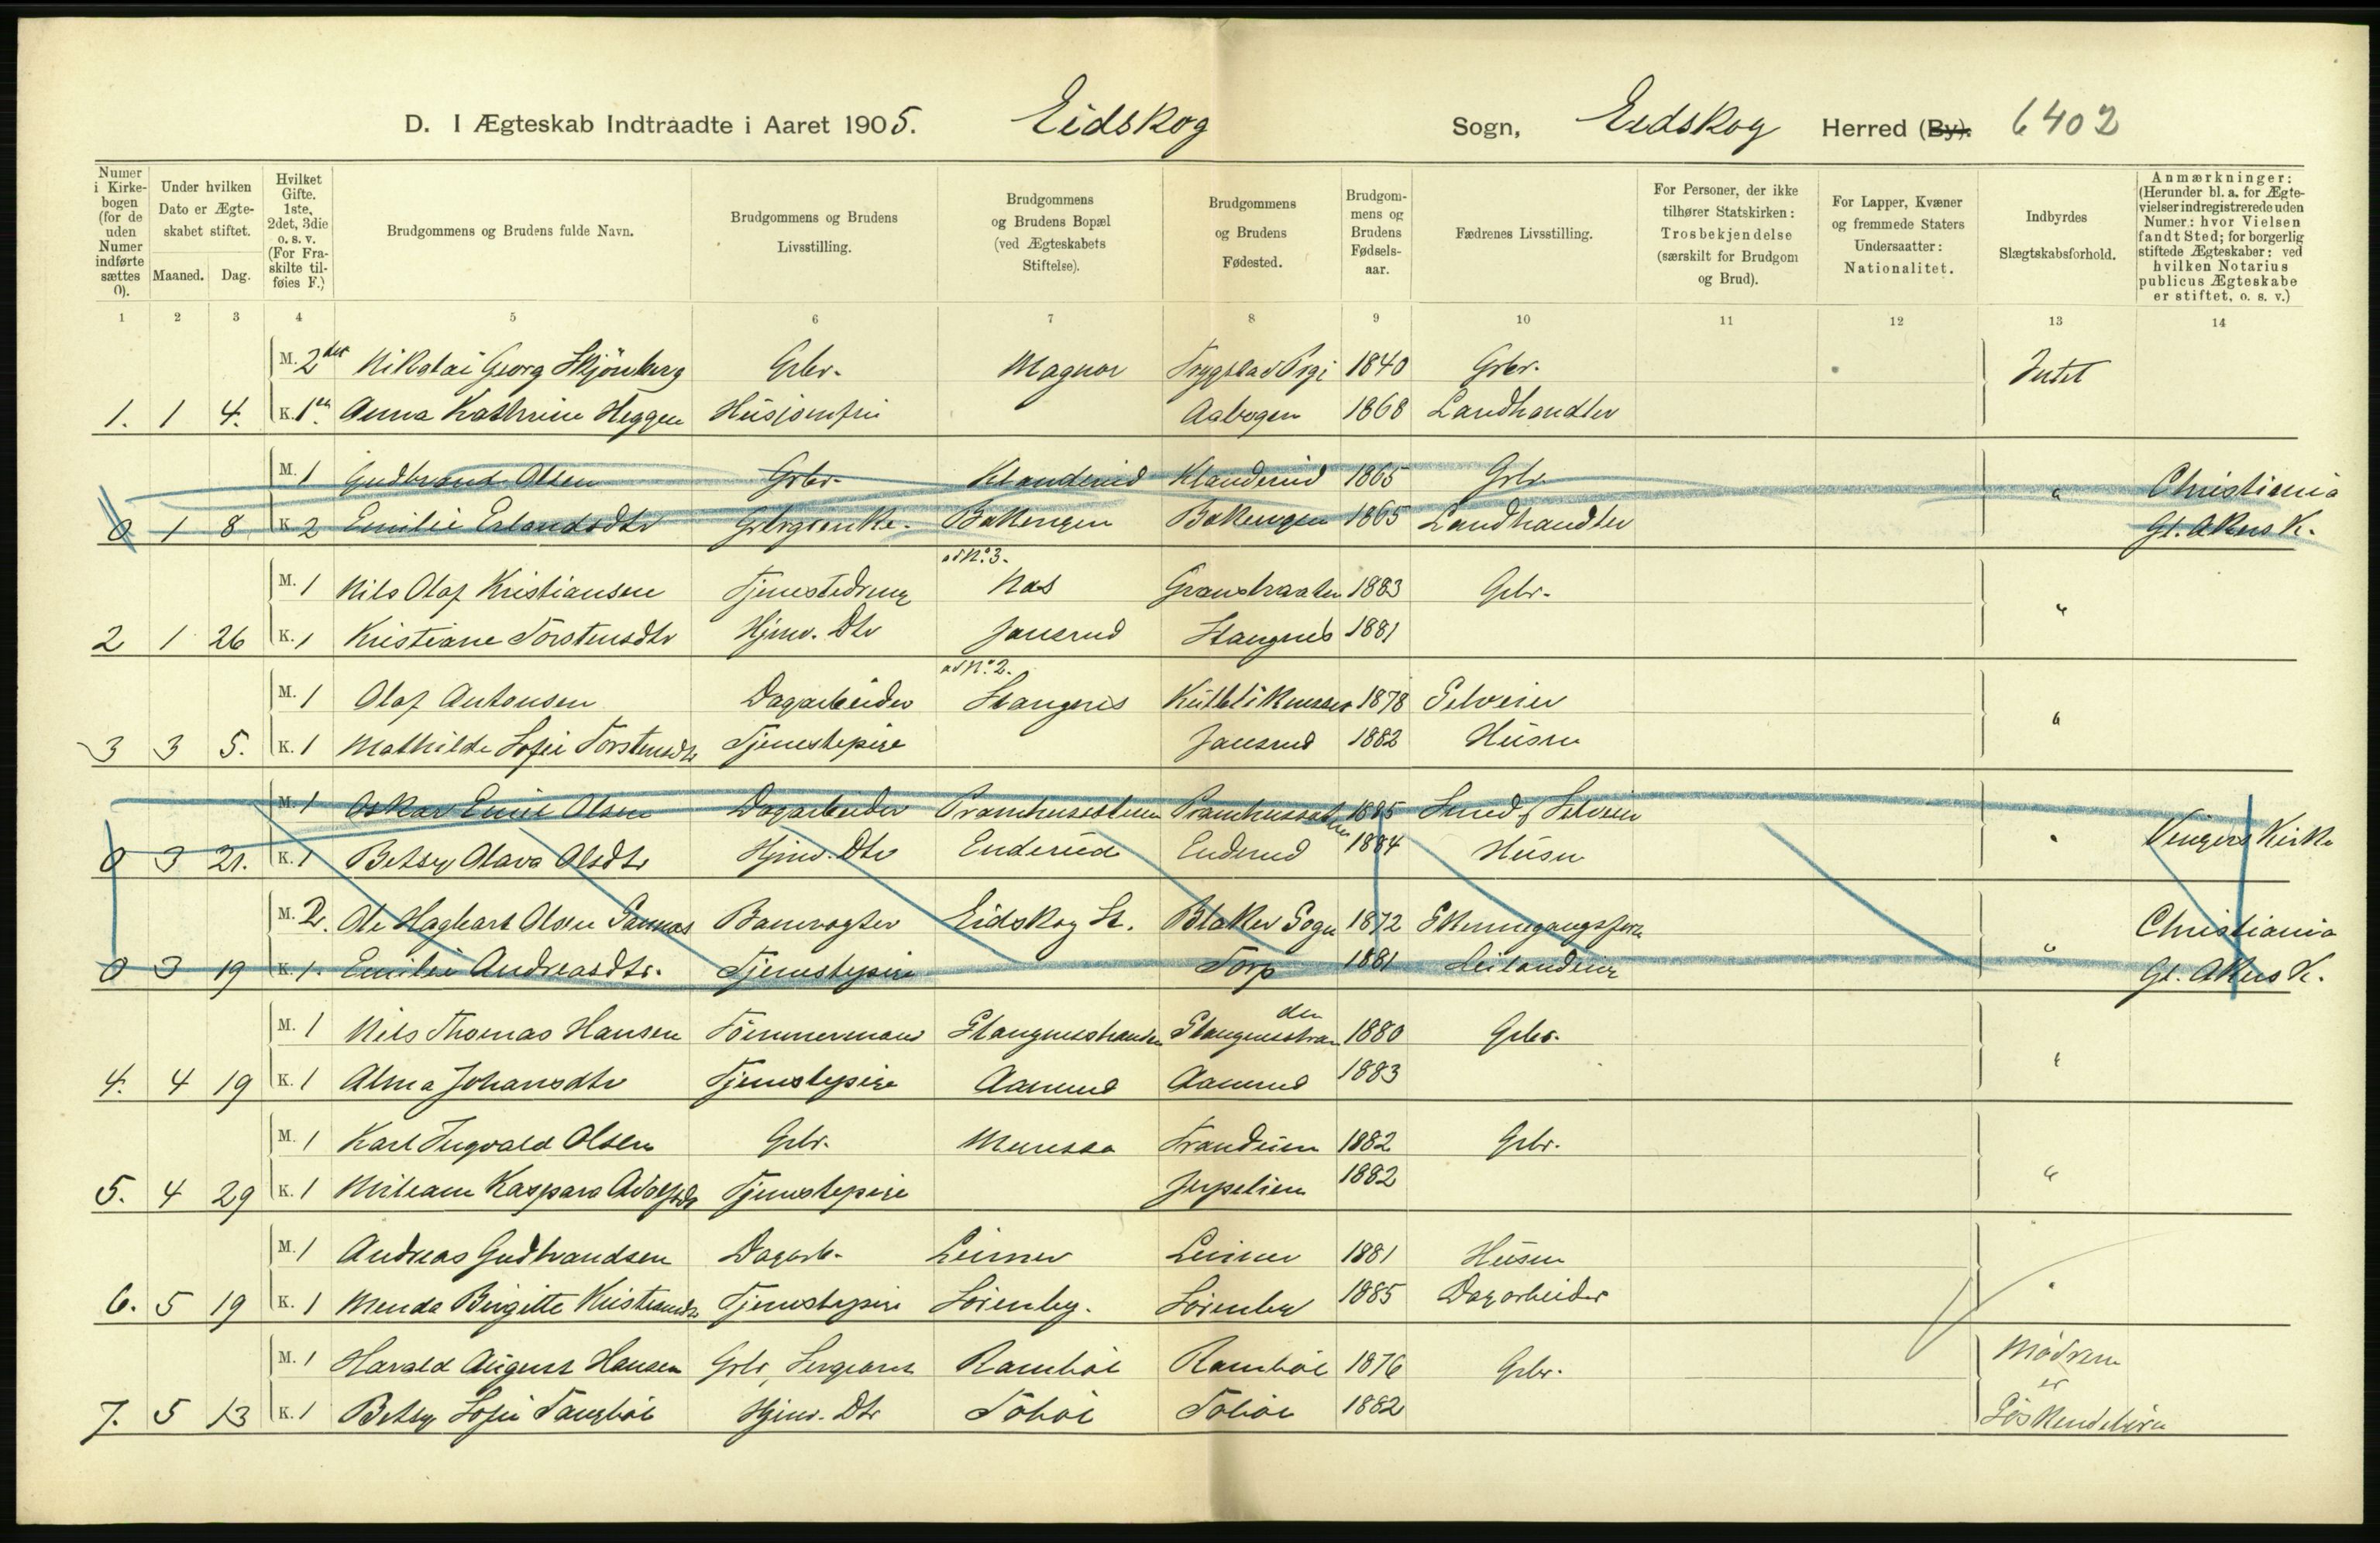 D. I Ægteskab Indtraadte i Aaret 1905. Eidskog Sogn, Eidskog Herred (By). 6402
Numer i Kirkebogen (for de uden Numer indførte sættes 0).
Under hvilken Dato er Ægteskabet stiftet.
Maaned. Dag.
Hvilket Gifte. 1ste, 2det, 3die o. s. v. (For Fraskilte tilføies F.)
Brudgommens og Brudens fulde Navn.
Brudgommens og Brudens Livsstilling.
Brudgommens og Brudens Bopæl (ved Ægteskabets Stiftelse).
Brudgommens og Brudens Fødested.
Brudgommens og Brudens Fødselsaar.
Fædrenes Livsstilling.
For Personer, der ikke tilhører Statskirken: Trosbekjendelse (særskilt for Brudgom og Brud).
For Lapper, Kvæner og fremmede Staters Undersaatter: Nationalitet.
Indbyrdes Slægtskabsforhold.
Anmærkninger: (Herunder bl. a. for Ægtevielser indregistrerede uden Numer: hvor Vielsen fandt Sted; for borgerlig stiftede Ægteskaber: ved hvilken Notarius publicus Ægteskabet er stiftet, o. s. v.)
1 2 3 4 5 6 7 8 9 10 11 12 13 14
M. 2det Nikolai Georg Skjönberg Grbr. Magnor Trygstad Prgj 1840 Grbr. Intet
1. 1 4. K. 1ste Anna Kathrine Heggen Husjomfru Aabogen 1868 Landhandler
M. 1 Gudbrand Olsen Grbr. Klanderud Klanderud 1865 Grbr. " Christiania
0 1 8 K. 2 Emilie Erlandsdtr Grbrgienke. Bakengen Bakengen 1865 Landhandler Gl. Akers K.
ad No. 3.
M. 1 Nils Olaf Kristiansen Tjenestedreng Næs 1883 Grbr. "
2 1 26 K. 1 Kristiane Torstensdtr Hjmv. Dtr Jansrud Stangnes 1881
ad No. 2.
M. 1 Olaf Antonsen Dagarbeider Stangnes 1878 Selveier "
3 3 5. K. 1 Mathilde Sofie Torstensdtr Tjenestepige Jansrud 1882 Husm
M. 1 Oskar Emil Olsen Dagarbeider Pramhussætren Pramhussætren 1885 Smed & Selveier
0 3 21. K. 1 Betsy Olava Olsdtr Hjmv. Dtr Enderud Enderud 1884 Husm " Vingers Kirke
M. 2. Ole Hagbart Olsen Banevogter Eidskog St. Blaker Sogn 1872 Christiania
0 3 19 K. 1. Emilie Andreasdtr. Tjenestepige Torp 1881 Leilending " Gl. Akers K.
M. 1 Nils Thomas Hansen Tömmermand Stangnesstranden Stangnesstranden 1880 Grbr.
4. 4 19 K. 1 Alma Johansdtr Tjenestepige Aamrud Aamrud 1883 "
M. 1 Karl Ingvald Olsen Grbr. 1882 Grbr.
5. 4 29 K. 1 Kaspara Adolfsdtr Tjenestepige 1882 "
M. 1 Andreas Gudbrandsen Dagarb. Leirner Leirner 1881 Husm
6. 5 19 K. 1 Menda Birgitte Kristiansdtr Tjenestepige Lörenby. Lörenby 1885 Dagarbeider "
M. 1 Harald August Hansen Grbr, Sergeant Ramhöi Ramhöi 1876 Grbr. Mödrene
7. 5 13 K. 1 Betsy Sofie Tanghöi Hjmv. Dtr Töhöi Töhöi 1882 er Söskendebörn